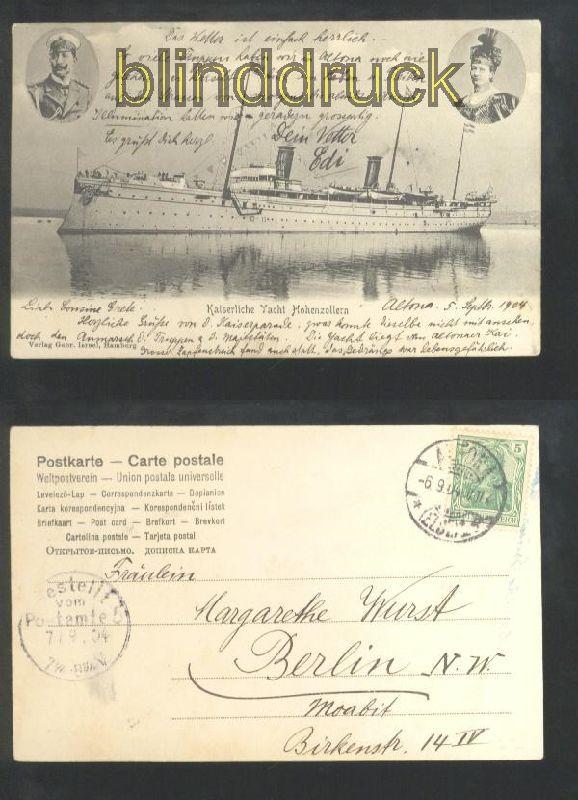 Das Wetter ist einfach herrlich.
blinddruck
Illumination hatten wir geradezu grossartig.
Es grüßt Dich herzl.
Dein Vetter
Edi
Kaiserliche Yacht Hohenzollern
Altona. 5. Septbr. 1904
Liebe Cousine Grete!
Herzliche Grüße von d. Kaiserparade, zwar konnte dieselbe nicht mit ansehen,
doch den Anmarsch d. Truppen u. d. Majestäten. Die Yacht liegt am Altonaer Kai.
Verlag Gebr. Israel, Hamburg
Grosser Zapfenstreich fand auch statt, das Gedränge war lebensgefährlich.
Postkarte — Carte postale
Weltpostverein — Union postale universelle
Levelező-Lap — Correspondenzkarte — Dopisnice
Karta korespondencyjna — Korespondenční lístek
Briefkaart — Post card — Brefkort — Brevkort
Cartolina postale — Tarjeta postal
Открытое письмо. дописна карта
5
-6.9.04
Fräulein
estellt
vom
Postamte 5
7/9.04
Margarethe Wurst
Berlin N.W
Moabit
Birkenstr. 14 IV